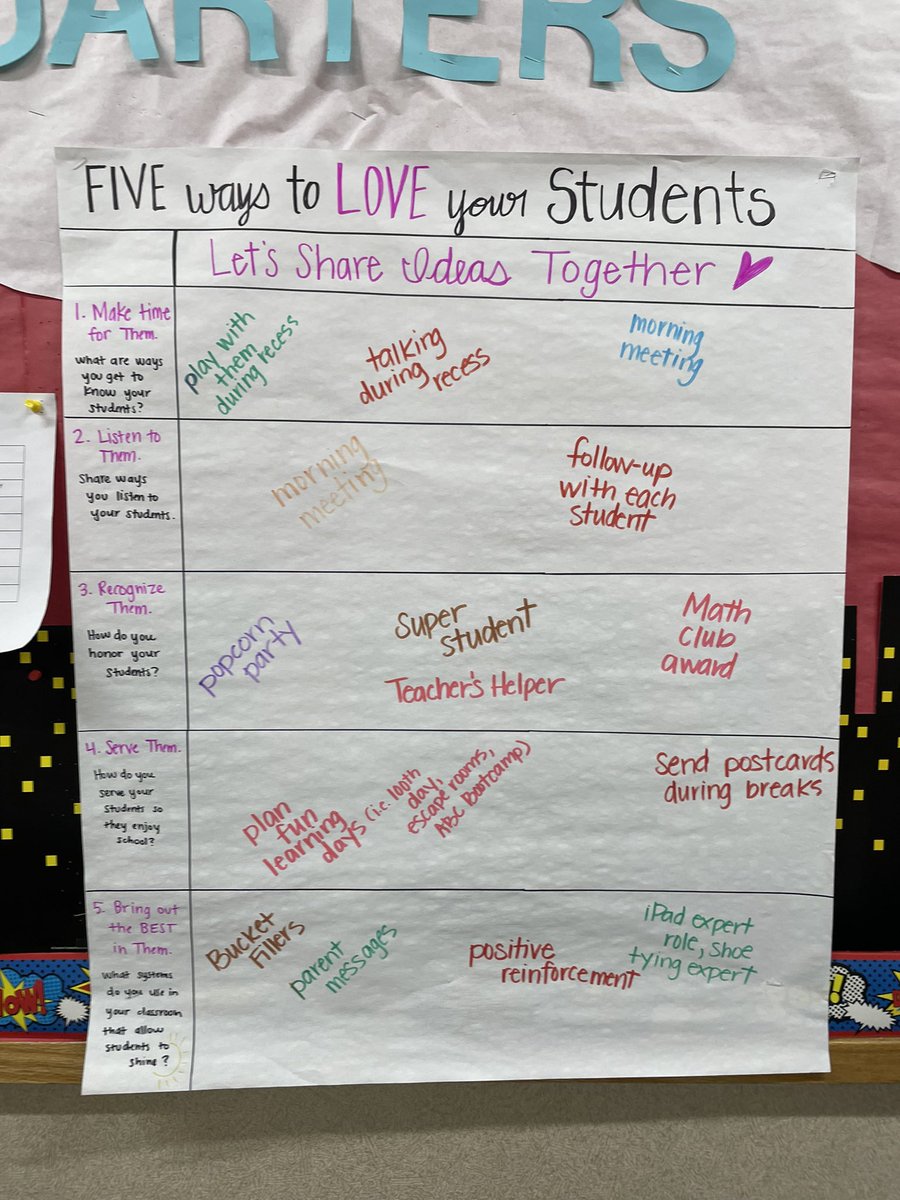 ARTERS
FIVE ways to LOVE your Students
Let's Share Ideas Together
1. Make time
for Them.
What are ways
you get to
know your
students?
play with
them
during recess
talking
during recess
morning
meeting
2. Listen to
Them.
Share ways
you listen to
your students.
morning
meeting
follow-up
with each
student
3. Recognize
Them.
How do you
honor your
students?
popcorn
party
Super
Student
Teacher's Helper
Math
Club
award
4. Serve Them.
How do you
serve your
students so
they enjoy
school?
plan
fun
learning
days (i.e. 100th
day,
escape rooms,
ABC Bootcamp)
Send postcards
during breaks
5. Bring out
the BEST
in Them.
What systems
do you use in
your classroom
that allow
students to
shine?
Bucket
Fillers
parent
messages
positive
reinforcement
iPad expert
role, shoe
tying expert